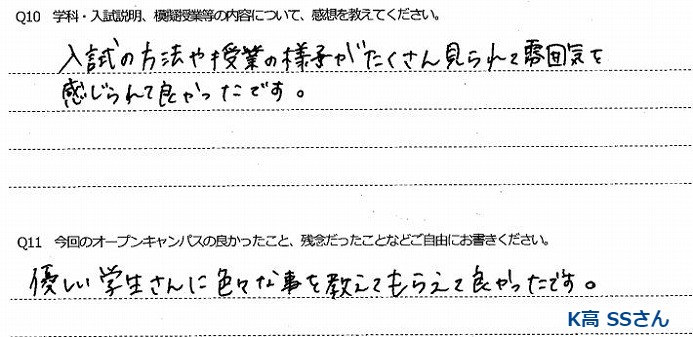 Q10 学科・入試説明、模擬授業等の内容について、感想を教えてください。
入試の方法や授業の様子がたくさん見られて雰囲気を
感じられて良かったです。
Q11 今回のオープンキャンパスの良かったこと、残念だったことなどご自由にお書きください。
優しい学生さんに色々な事を教えてもらえて良かったです。
K高 SSさん